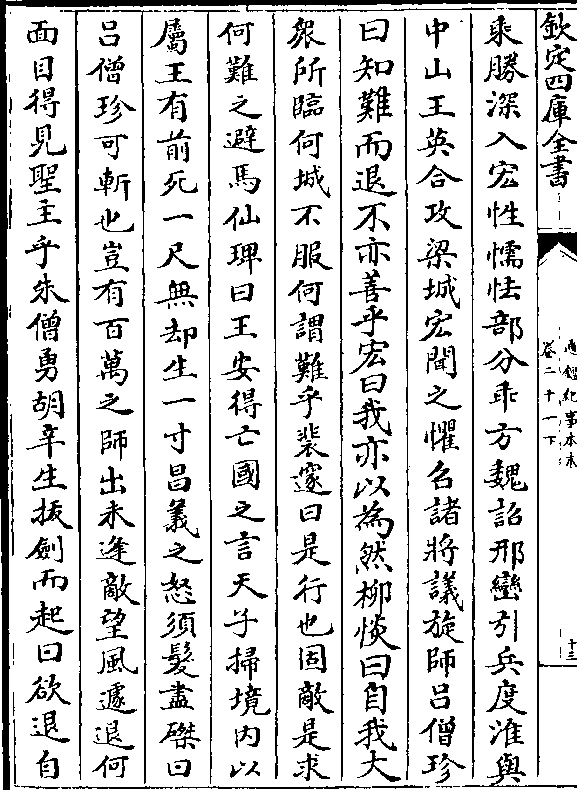 欽定四庫全書
通鑑紀事本末
卷二十一下
十三
乘勝深入宏性懦怯部分乖方魏詔邢巒引兵度淮與
中山王英合攻梁城宏聞之懼召諸將議旋師呂僧珍
曰知難而退不亦善乎宏曰我亦以為然柳惔曰自我大
衆所臨何城不服何謂難乎裴邃曰是行也固敵是求
何難之避馬仙琕曰王安得亡國之言天子掃境内以
屬王有前死一尺無却生一寸昌義之怒須髮盡磔曰
呂僧珍可斬也豈有百萬之師出未逢敵望風遽退何
面目得見聖主乎朱僧勇胡辛生拔劍而起曰欲退自